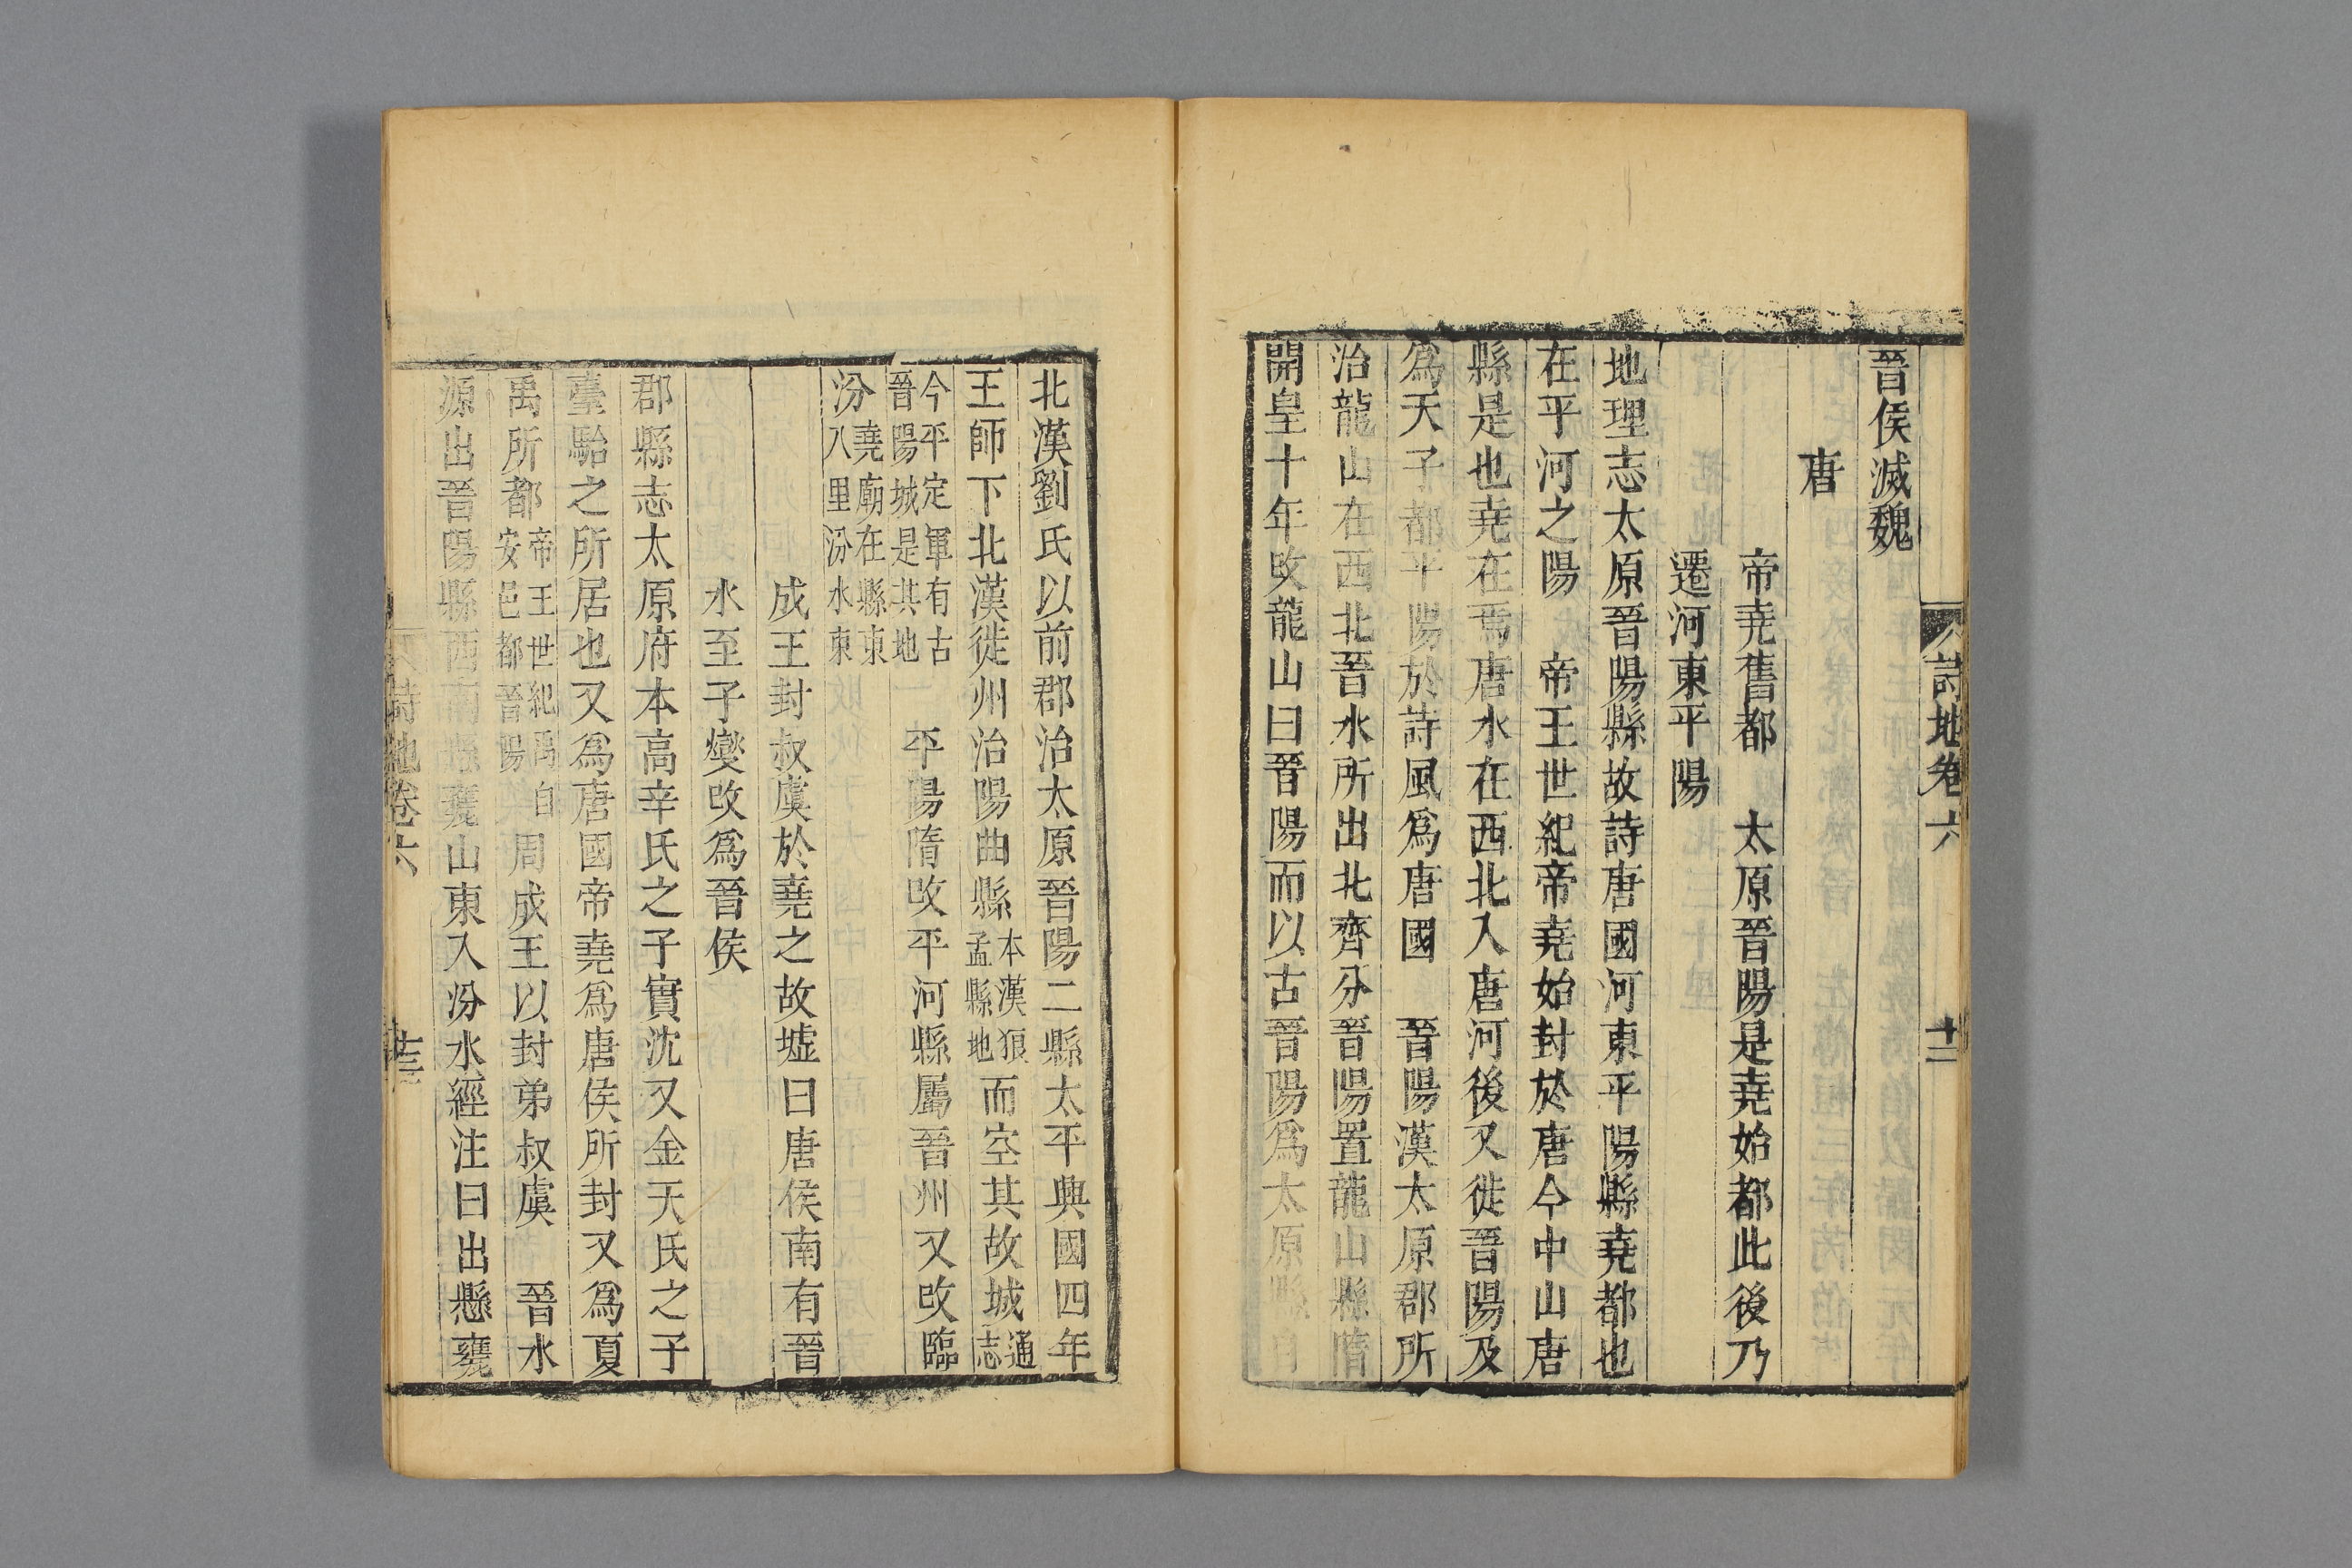 詩地卷六
十二
晉侯滅魏
唐
帝堯舊都　太原晉陽是堯始都此後乃
遷河東平陽
地理志太原晉陽縣故詩唐國河東平陽縣堯都也
在平河之陽　帝王世紀帝堯始封於唐今中山唐
縣是也堯在焉唐水在西北入唐河後又徙晉陽及
爲天子都平陽於詩風爲唐國　晉陽漢太原郡所
治龍山在西北晉水所出北齊分晉陽置龍山縣隋
開皇十年改龍山曰晉陽而以古晉陽爲太原縣自
北漢劉氏以前郡治太原晉陽二縣太平興國四年
王師下北漢徙州治陽曲縣本漢狼孟縣地而空其故城通志
今平定軍有古晉陽城是其地　平陽隋改平河縣屬晉州又改臨
汾堯廟在縣東八里汾水東
成王封叔虞於堯之故墟曰唐侯南有晉
水至子燮改爲晉侯
郡縣志太原府本高辛氏之子實沈又金天氏之子
臺駘之所居也又爲唐國帝堯爲唐侯所封又爲夏
禹所都帝王世紀禹自安邑都晉陽周成王以封弟叔虞　晉水
源出晉陽縣西南懸甕山東入汾水經注曰出懸甕
詩地卷六
十三